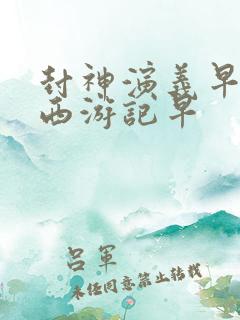 封神演义早
西游记早
吕军
未经同意禁止转载